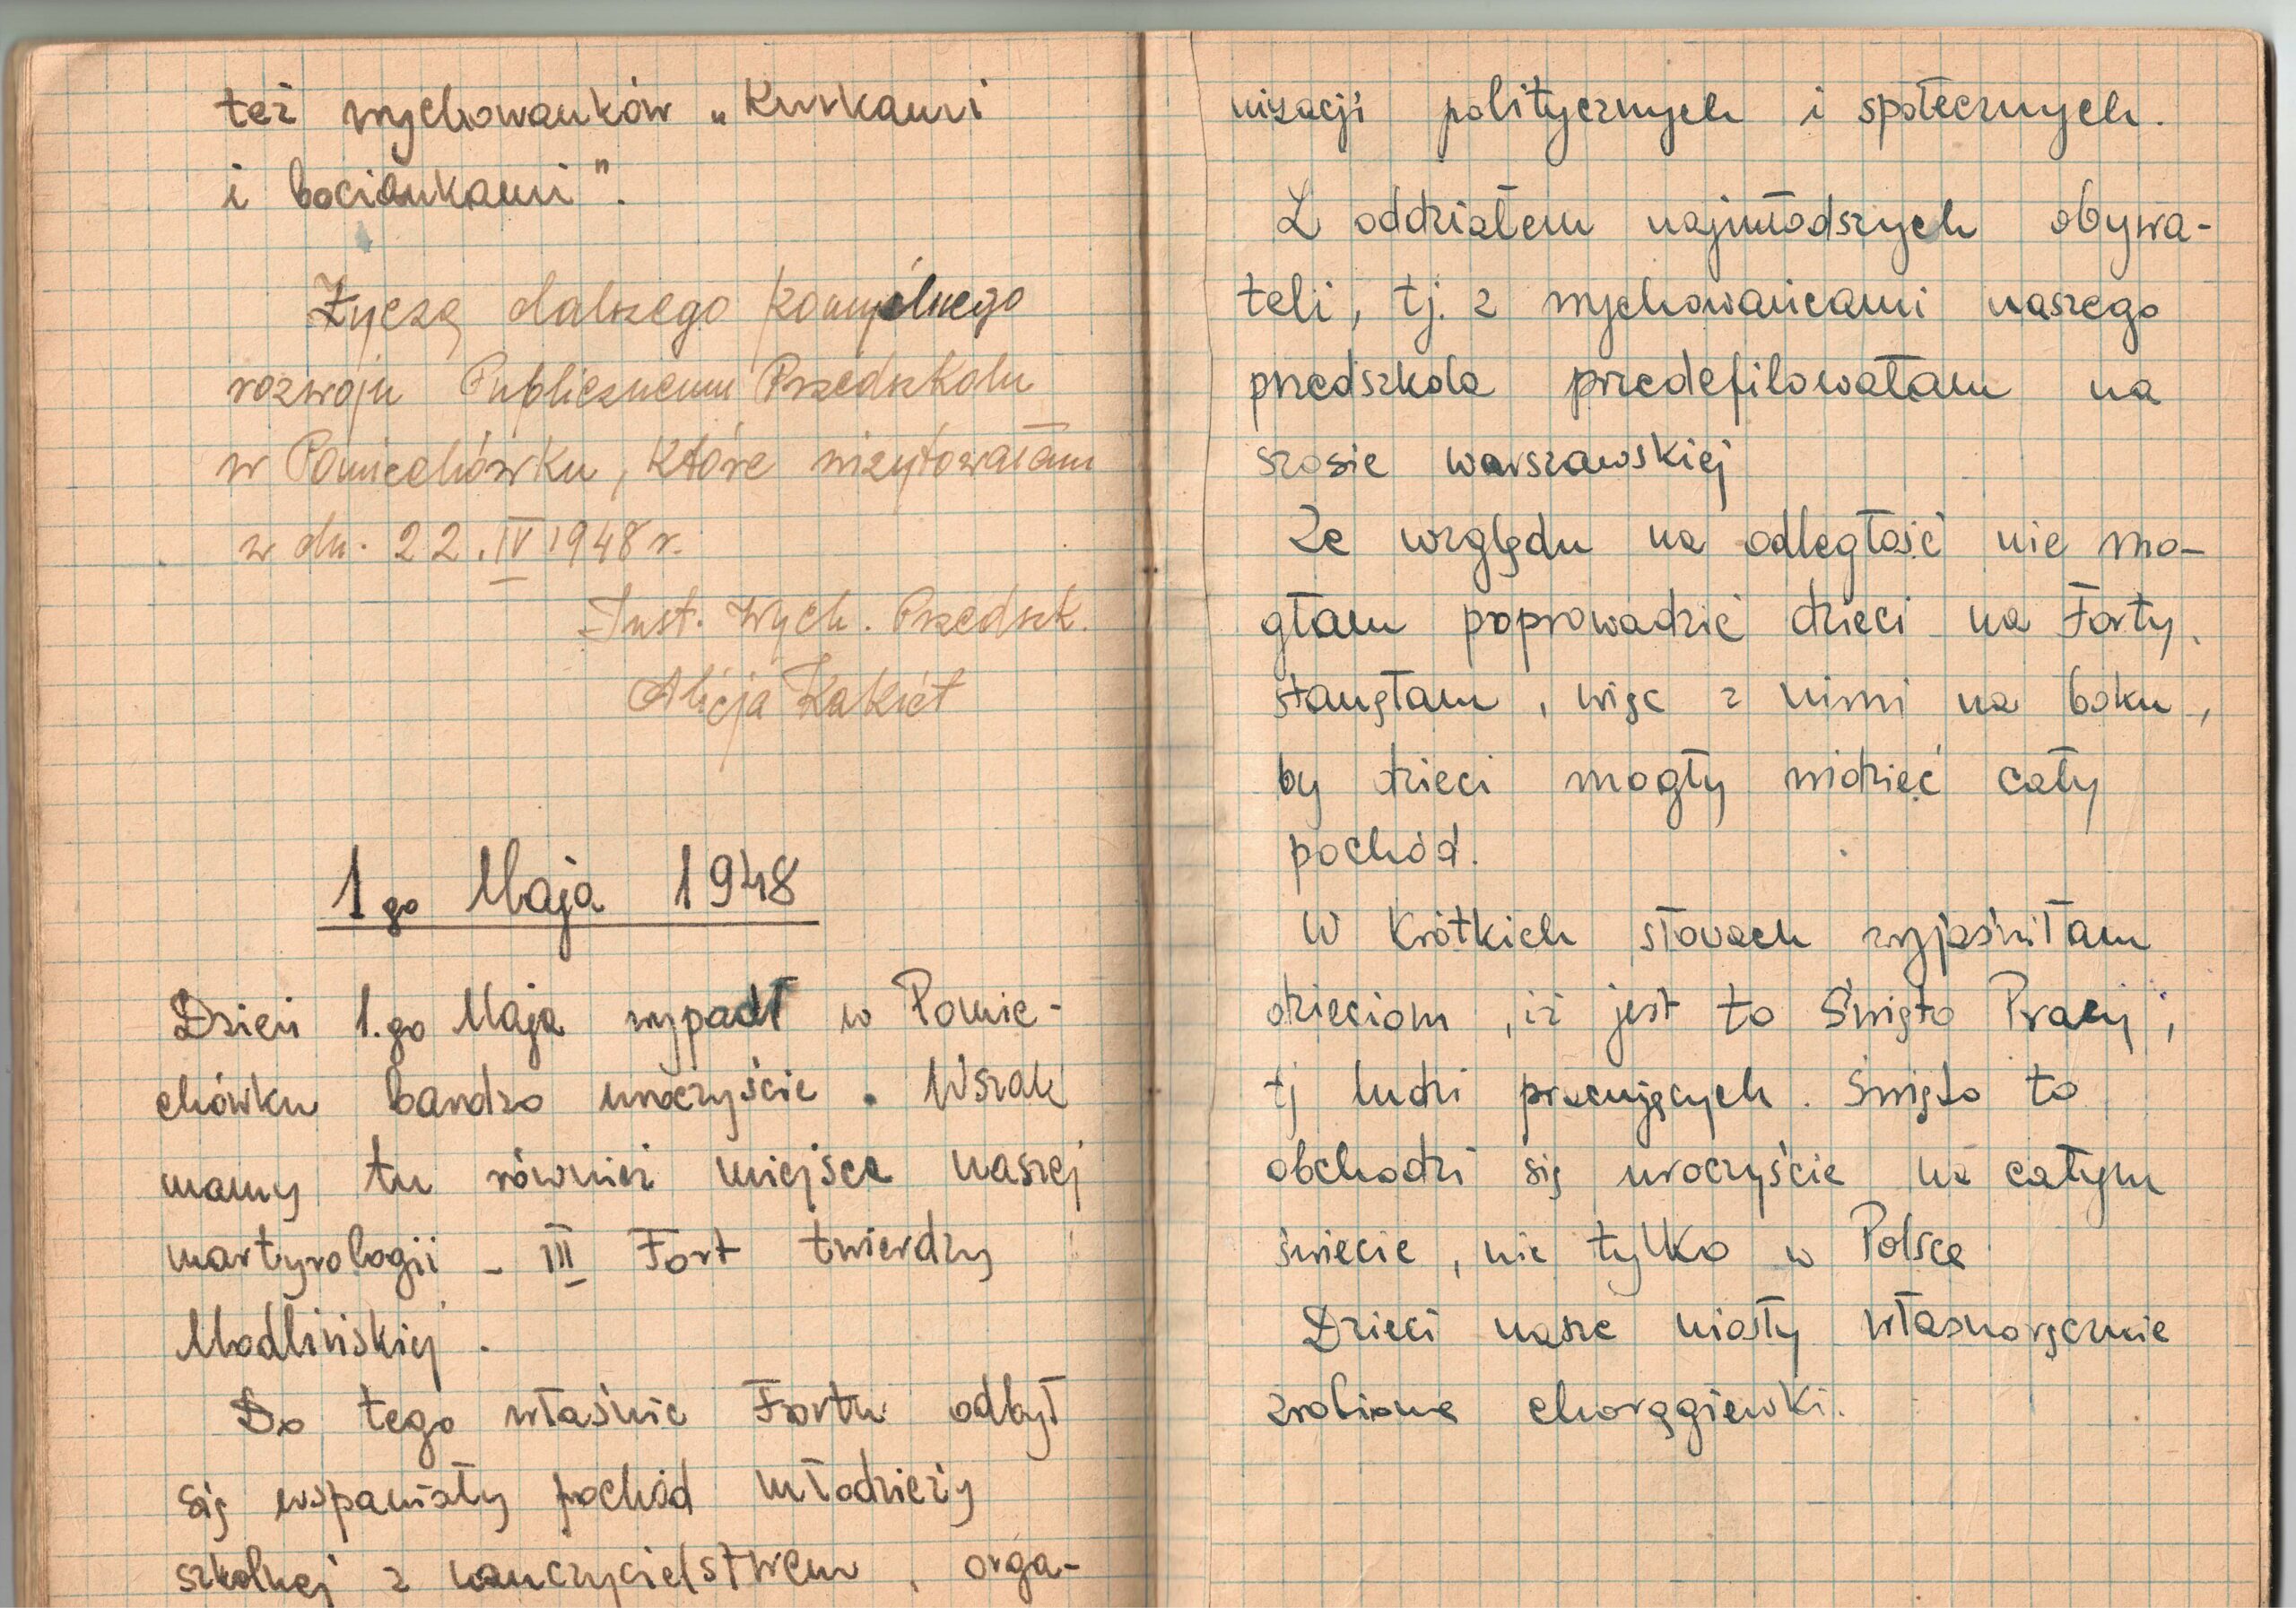 też wychowanków „Kurkami
i bociankami".
Życzę dalszego pomyślnego
rozwoju Publicznemu Przedszkolu
w Pomiechówku, które wizytowałam
w dn. 22.IV 1948 r.
Inst. Wych. Przedszk.
Alicja Kakiet
1go Maja 1948
Dzień 1.go Maja wypadł w Pomie-
chówku bardzo uroczyście. Wszak
mamy tu również miejsce naszej
martyrologii - III Fort twierdzy
Modlińskiej.
Do tego właśnie Fortu odbył
się wspaniały pochód młodzieży
szkolnej z nauczycielstwem, orga-
nizacji politycznych i społecznych.
Z oddziałem najmłodszych obywa-
teli, tj. z wychowankami naszego
przedszkola przedefilowałam na
szosie warszawskiej
Ze względu na odległość nie mo-
głam poprowadzić dzieci na Forty.
stanęłam, więc z nimi na boku,
by dzieci mogły widzieć cały
pochód.
W krótkich słowach wyjaśniłam
dzieciom, iż jest to Święto Pracy,
tj ludzi pracujących. Święto to
obchodzi się uroczyście na całym
świecie, nie tylko w Polsce
Dzieci nasze niosły własnoręcznie
zrobione chorągiewki.